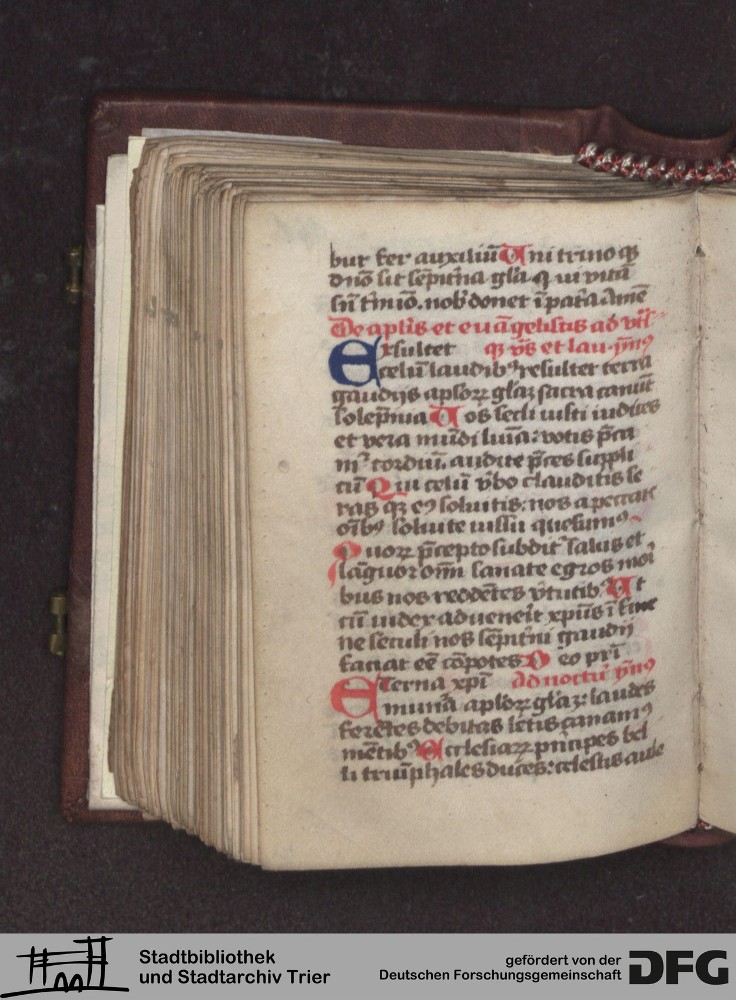 bus fer auxiliū Uni trino qȝ
dnō sit sēpit͛na gl͛a q ui vitā
sn̄ t͛mīo nob͛ donet ī pat͛a Amē
De aplīs et euāgelistis ad
Exsultet et lau ymꝰ
celū laudibꝰ resultet terra
gaudijs aplorꝝ gl͛aȝ sacra canūt
solēpnia Uos secli iusti iudices
et vera mūdi luīa votis p̄ca
mͬ cordiū audite p̄ces suppli
cū Qui celū v͛bo clauditis se
ras qȝ eꝰ soluitis nos a peccatꝭ
oībꝰ soluite iussu quesumꝰ
Quorꝝ p̄cepto subdit͛ salus et
lāguor oīm sanate egros mori
bus nos reddētes v͛tutibꝰ Ut
cū iudex aduenerit xpūs ī fine
ne seculi nos sēpit͛ni gaudij
faciat eē cōpotes Deo pr̄i
Eterna xpī Ad noctur͛ ymꝰ
mun͛a aplorꝝ gl͛aȝ laudes
ferētes debitas letis canamꝰ
mētibꝰ Ecclesiarꝝ prīcipes bel
li triūphales duces celestis aule
Stadtbibliothek
und Stadtarchiv Trier
gefördert von der
Deutschen Forschungsgemeinschaft
DFG